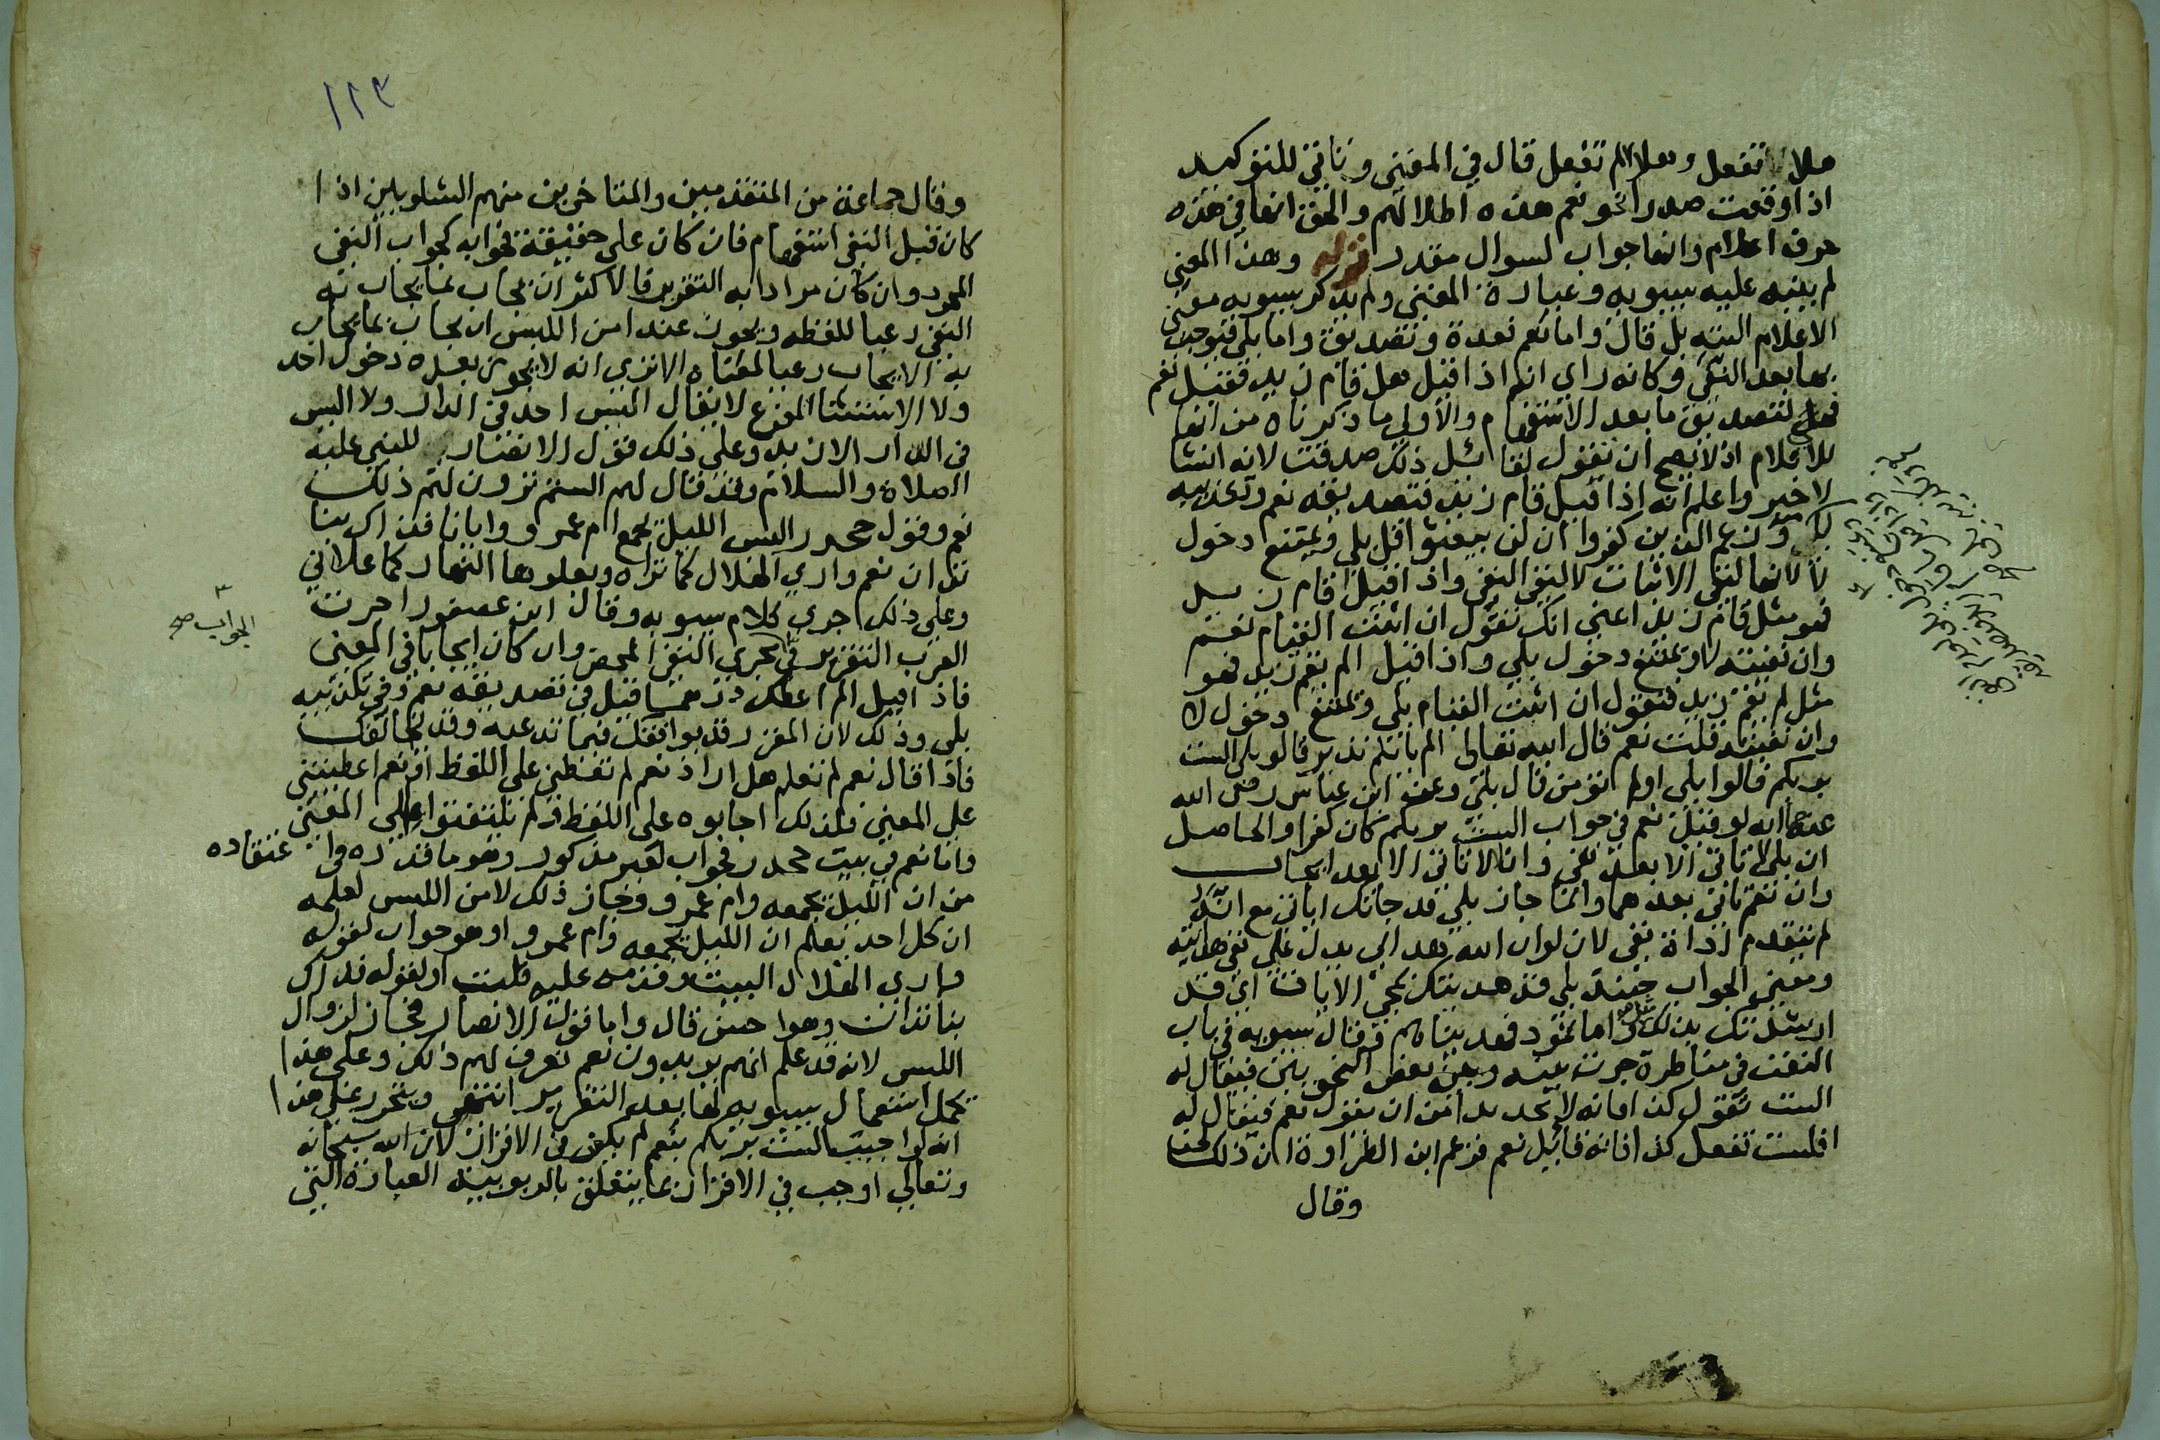 هلا تفعل وهلا لم تفعل قال في المغني وتاتي للتوكيد
اذا وقعت صدرا نحو نعم هذه اطلالهم والحق انها في هذه
حرف اعلام وانها جواب لسوال مقدر وهذا المعنى
لم ينبه عليه سيبويه وعبارة المغني ولم يذكر سيبويه معنى
الاعلام البته بل قال واما نعم فعدة وتصديق واما بلى فيوجب
بها بعد النفي وكانه راي انه اذا قيل هل قام زيد فقيل نعم
فهي لتصديق ما بعد الاستفهام والاولى ما ذكرناه من انها
للاعلام اذ لا يصح ان تقول لقائل ذلك صدقت لانه انشا
لا خبر واعلم انه اذا قيل قام زيد فتصديقه نعم وتكذيبه
لا ويمتنع دخول بلى لعدم النفي واذا قيل ما قام زيد فتصديقه نعم وتكذيبه
بلى ومنه زعم الذين كفروا ان لن يبعثوا قل بلى ويمتنع دخول
لا لانها لنفي الاثبات لا لنفي النفي واذا قيل اقام زيد
فهو مثل قام زيد اعني انك تقول ان اثبت القيام نعم
وان نفيته لا ويمتنع دخول بلى واذا قيل الم يقم زيد فهو
مثل لم يقم زيد فتقول ان اثبت القيام بلى ويمتنع دخول لا
وان نفيته قلت نعم قال الله تعالى الم ياتكم نذير قالوا بلى الست
بربكم قالوا بلى اولم تؤمن قال بلى وعن ابن عباس رضي الله
عنهما انه لو قيل نعم في جواب الست بربكم كان كفرا والحاصل
ان بلى لا تاتي الا بعد نفي وان لا لا تاتي الا بعد ايجاب
وان نعم تاتي بعدهما وانما جاز بلى قد جاتك اياتي مع انه
لم يتقدم اداة نفي لان لو ان الله هداني يدل على نفي هدايته
ومعنى الجواب حينئذ بلى قد هديتك بمجي الايات اي قد
ارشدتك بذلك مثل واما ثمود فهديناهم وقال سيبويه في باب
النعت في مناظرة جرت بينه وبين بعض النحويين فيقال له
الست تقول كذا فانه لا يجد بدا من ان يقول نعم فيقال له
افلست تفعل كذا فانه قائل نعم فزعم ابن الطراوة ان ذلك لحن
وقال
١١٣
وقال جماعة من المتقدمين والمتاخرين منهم الشلوبين اذا
كان قبل النفي استفهام فان كان على حقيقة فجوابه كجواب النفي
المجرد وان كان مرادا به التقرير فالاكثر ان يجاب بما يجاب به
النفي رعيا للفظه ويجوز عند امن اللبس ان يجاب بما يجاب
به الايجاب رعيا لمعناه الا ترى انه لا يجوز بعده دخول احد
ولا الاستثنا المفرغ لا يقال اليس احد في الدار ولا اليس
في الدار الا زيد وعلى ذلك قول الانصار للنبي عليه
الصلاة والسلام وقد قال لهم الستم ترون لهم ذلك
نعم وقول جحدر اليس الليل يجمع ام عمرو وايانا فذاك بنا
تدان نعم وارى الهلال كما تراه ويعلوها النهار كما علاني
وعلى ذلك جرى كلام سيبويه وقال ابن عصفور اجرت
العرب التقرير في الجواب صح مجرى النفي المحض وان كان ايجابا في المعنى
فاذا قيل الم اعطك درهما قيل في تصديقه نعم وفي تكذيبه
بلى وذلك لان المقرر قد يوافقك فيما تدعيه وقد يخالفك
فاذا قال نعم لم تعلم هل اراد نعم لم تعطني على اللفظ او نعم اعطيتني
على المعنى فلذلك اجابوه على اللفظ ولم يلتفتوا الى المعنى
واما نعم في بيت جحدر فجواب لغير مذكور وهو ما قدره في اعتقاده
من ان الليل يجمعه وام عمرو وجاز ذلك لامن اللبس لعلمه
ان كل احد يعلم ان الليل يجمعه وام عمرو او هو جواب لقوله
وارى الهلال البيت وقدمه عليه قلت او لقوله فذاك
بنا تدان وهو احسن قال واما قول الانصار فجاز لزوال
اللبس لانه قد علم انهم يريدون نعم نعرف لهم ذلك وعلى هذا
يحمل استعمال سيبويه لها بعد التقرير انتهى ويتحرر على هذا
انه لو اجيب الست بربكم بنعم لم يكف في الاقرار لان الله سبحانه
وتعالى اوجب في الاقرار بما يتعلق بالربوبية العبارة التي